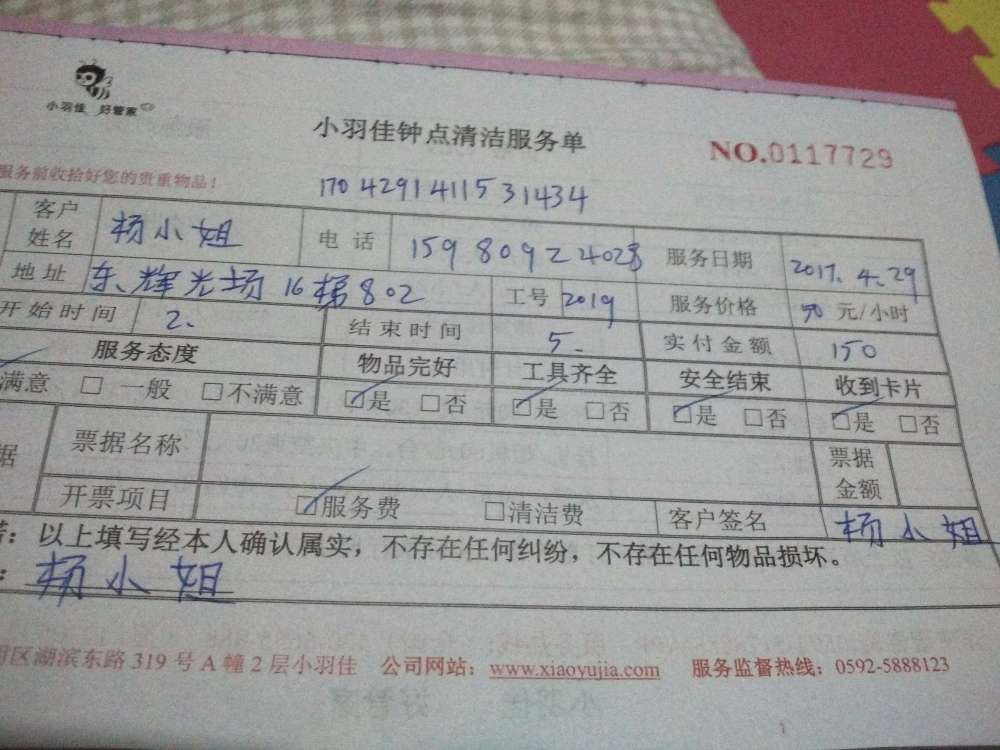 小羽佳 好管家
小羽佳钟点清洁服务单
NO.0117729
服务前收拾好您的贵重物品！
1704291411531434
客户姓名 杨小姐 电话 15980922028 服务日期 2017.4.29
地址 东辉光场16梯802 工号 2019 服务价格 50 元/小时
开始时间 2. 结束时间 5. 实付金额 150
服务态度 物品完好 工具齐全 安全结束 收到卡片
满意 □ 一般 □不满意 ☑是 □否 ☑是 □否 ☑是 □否 ☑是 □否
据 票据名称 票据金额
开票项目 ☑服务费 □清洁费 客户签名 杨小姐
：以上填写经本人确认属实，不存在任何纠纷，不存在任何物品损坏。
：杨小姐
区湖滨东路 319 号 A 幢 2 层小羽佳 公司网站：www.xiaoyujia.com 服务监督热线：0592-5888123
1